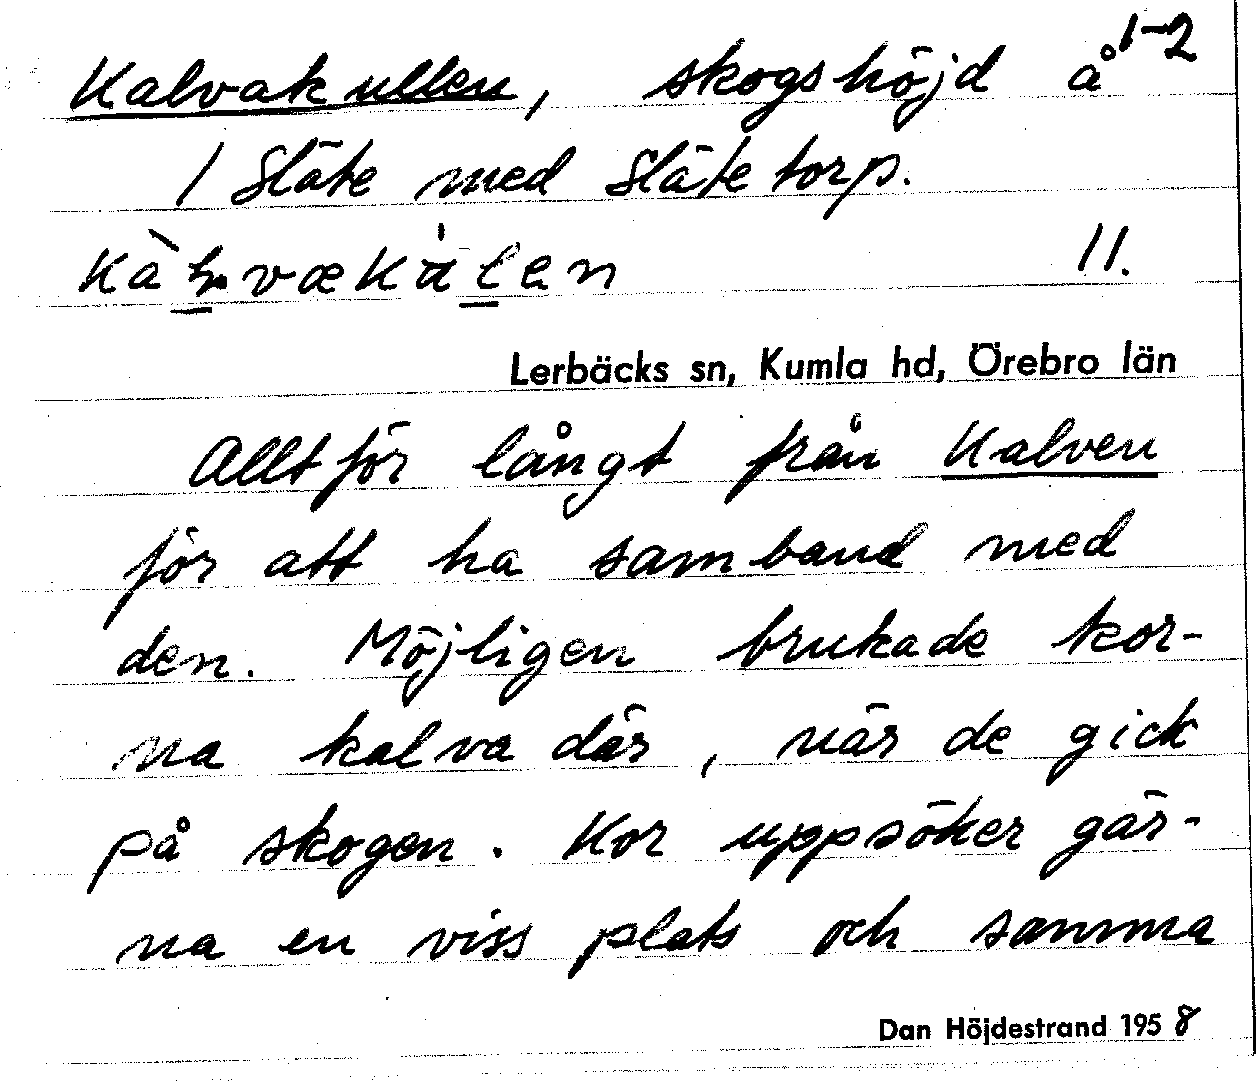 Kalvakullen, skogshöjd å 1-2
1 Släte med Släte torp.
11.
Lerbäcks sn, Kumla hd, Örebro län
Alltför långt från Kalven
för att ha samband med
den. Möjligen brukade kor-
na kalva där, när de gick
på skogen. Kor uppsöker gär-
na en viss plats och samma
Dan Höjdestrand 1958